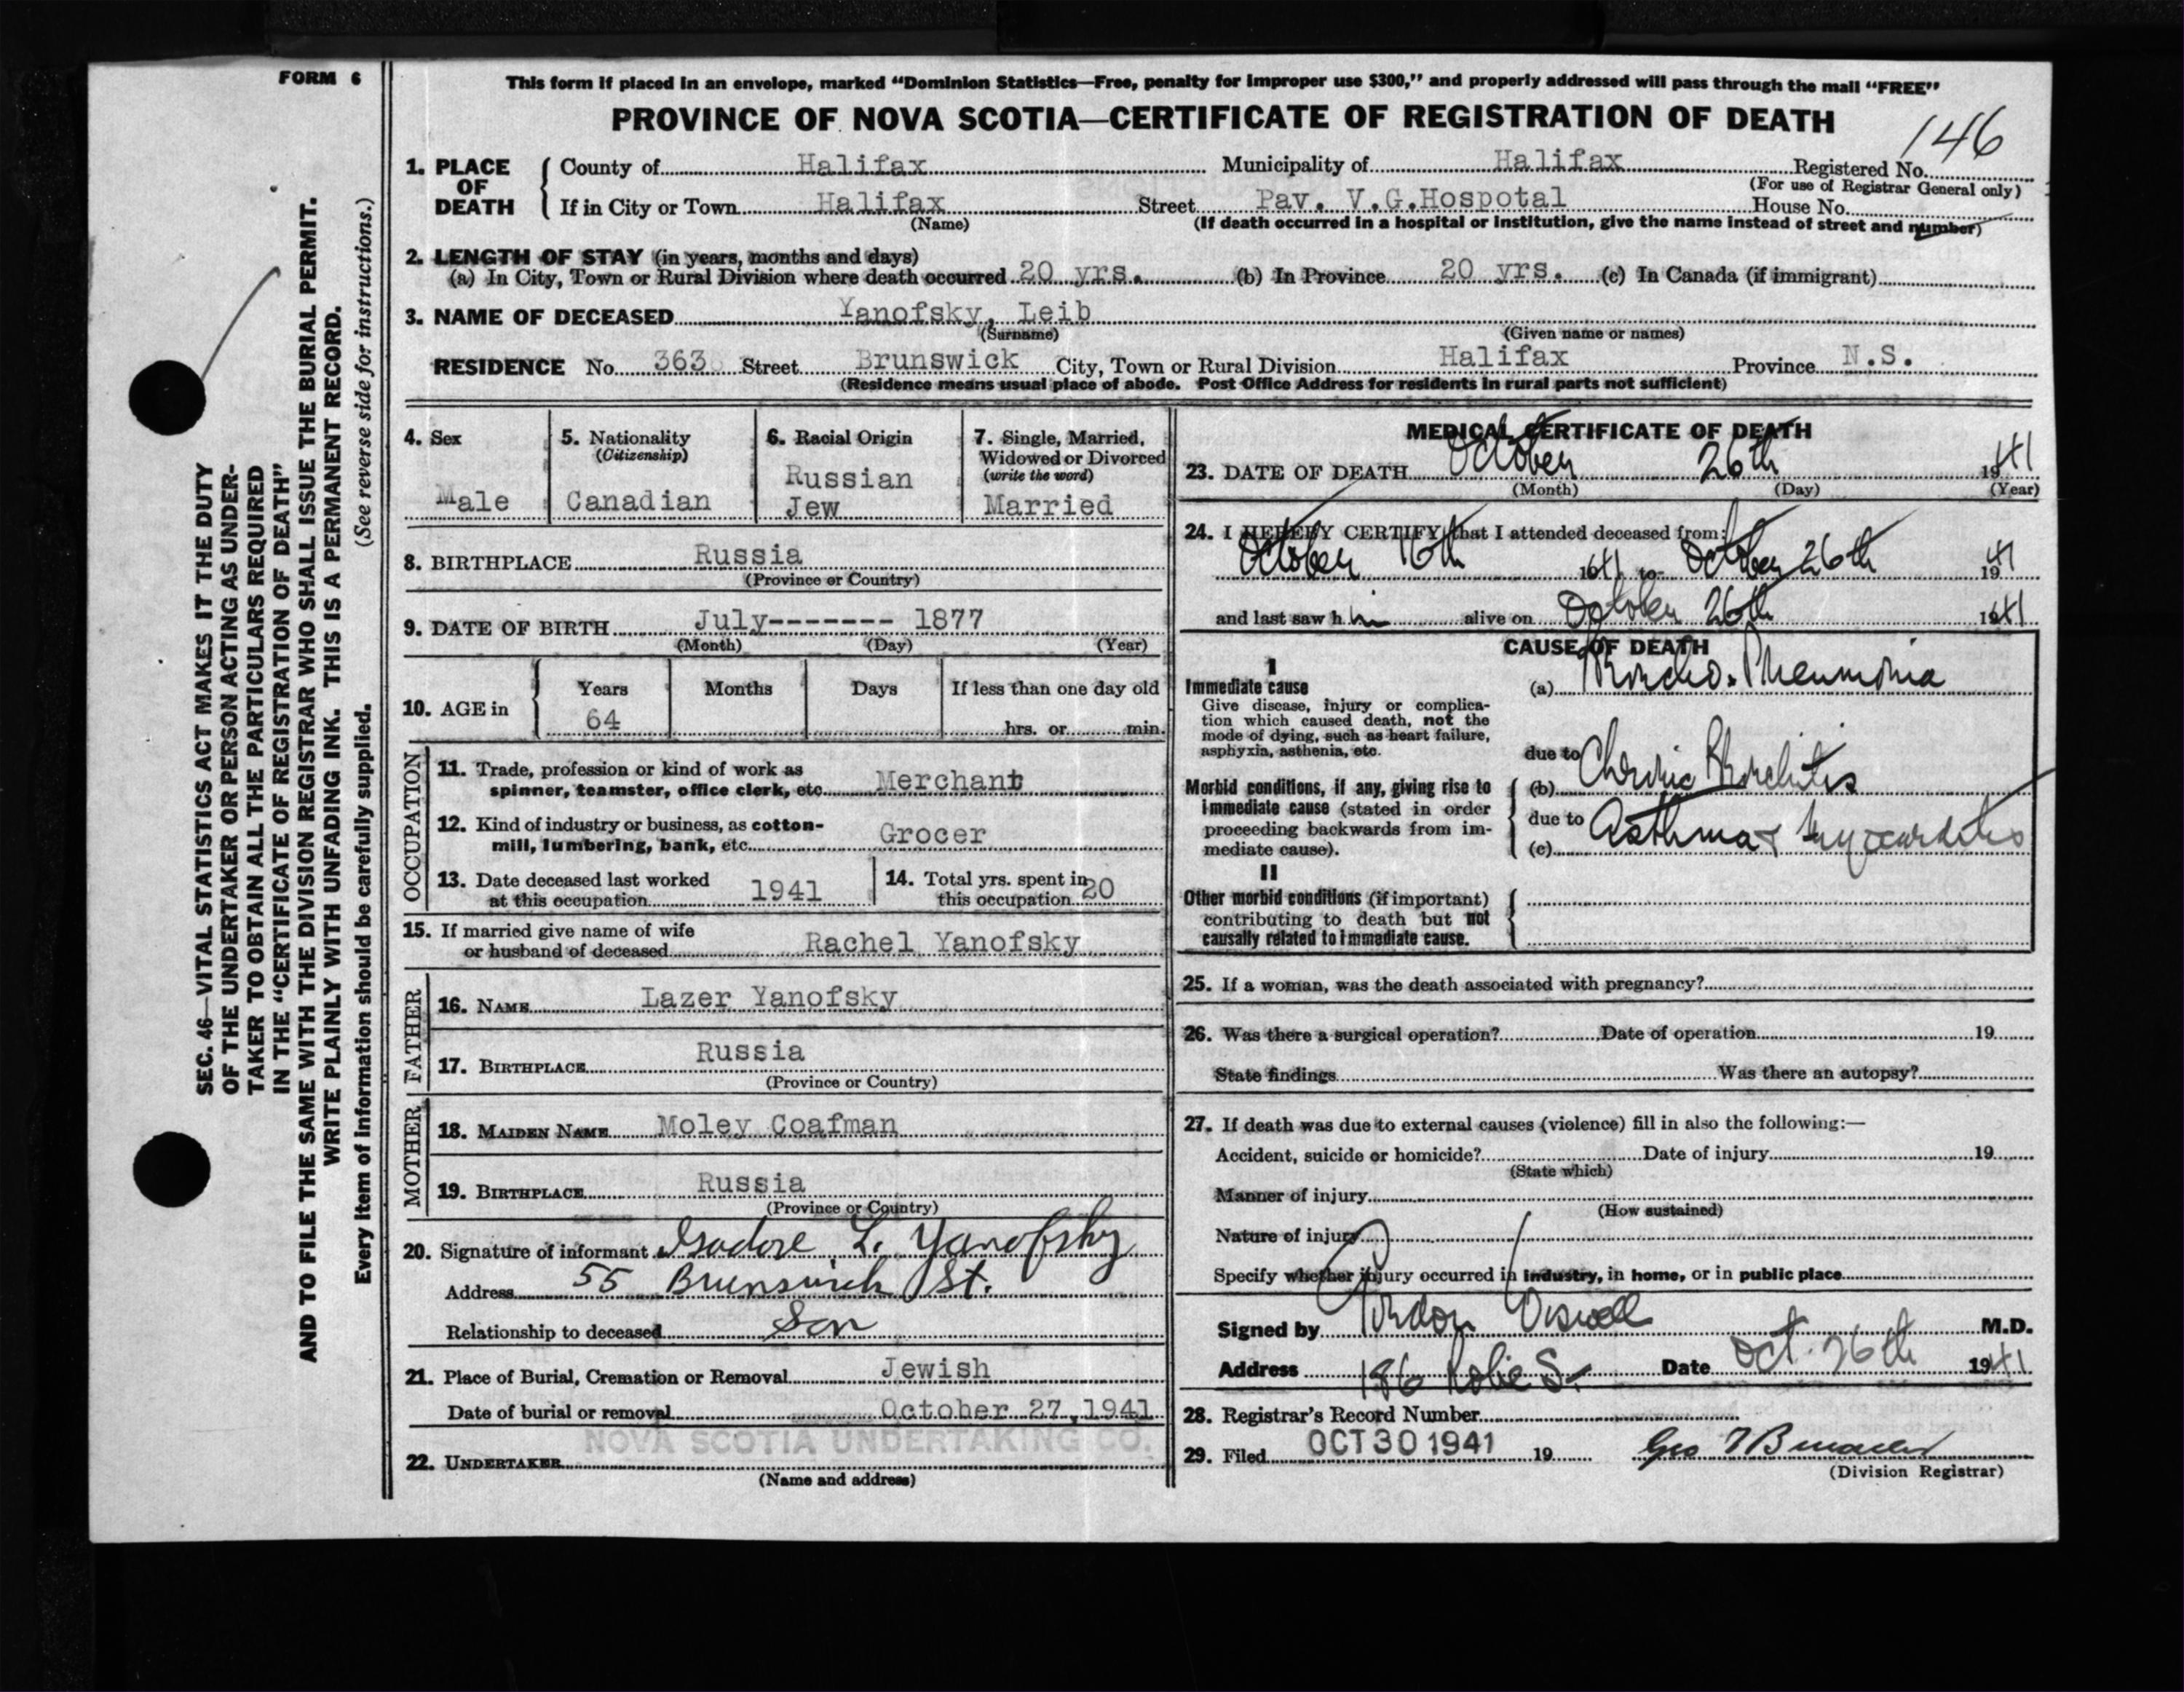 FORM 6
SEC. 46—VITAL STATISTICS ACT MAKES IT THE DUTY
OF THE UNDERTAKER OR PERSON ACTING AS UNDER-
TAKER TO OBTAIN ALL THE PARTICULARS REQUIRED
IN THE "CERTIFICATE OF REGISTRATION OF DEATH"
AND TO FILE THE SAME WITH THE DIVISION REGISTRAR WHO SHALL ISSUE THE BURIAL PERMIT.
WRITE PLAINLY WITH UNFADING INK. THIS IS A PERMANENT RECORD.
Every item of information should be carefully supplied. (See reverse side for instructions.)
This form if placed in an envelope, marked "Dominion Statistics—Free, penalty for improper use $300," and properly addressed will pass through the mail "FREE"
PROVINCE OF NOVA SCOTIA—CERTIFICATE OF REGISTRATION OF DEATH
146
1. PLACE OF DEATH County of Halifax Municipality of Halifax Registered No.
(For use of Registrar General only)
If in City or Town Halifax Street Pav. V.G.Hospotal House No.
(Name) (If death occurred in a hospital or institution, give the name instead of street and number)
2. LENGTH OF STAY (in years, months and days)
(a) In City, Town or Rural Division where death occurred 20 yrs. (b) In Province 20 yrs. (c) In Canada (if immigrant)
3. NAME OF DECEASED Yanofsky, Leib
(Surname) (Given name or names)
RESIDENCE No. 363 Street Brunswick City, Town or Rural Division Halifax Province N.S.
(Residence means usual place of abode. Post Office Address for residents in rural parts not sufficient)
4. Sex Male
5. Nationality (Citizenship) Canadian
6. Racial Origin Russian Jew
7. Single, Married, Widowed or Divorced (write the word) Married
8. BIRTHPLACE Russia
(Province or Country)
9. DATE OF BIRTH July------- 1877
(Month) (Day) (Year)
10. AGE in Years Months Days If less than one day old
64 hrs. or min.
OCCUPATION
11. Trade, profession or kind of work as
spinner, teamster, office clerk, etc. Merchant
12. Kind of industry or business, as cotton-
mill, lumbering, bank, etc. Grocer
13. Date deceased last worked
at this occupation 1941
14. Total yrs. spent in
this occupation 20
15. If married give name of wife
or husband of deceased Rachel Yanofsky
FATHER
16. NAME Lazer Yanofsky
17. BIRTHPLACE Russia
(Province or Country)
MOTHER
18. MAIDEN NAME Moley Coafman
19. BIRTHPLACE Russia
(Province or Country)
20. Signature of informant Isadore L. Yanofsky
Address 55 Brunswick St.
Relationship to deceased Son
21. Place of Burial, Cremation or Removal Jewish
Date of burial or removal October 27,1941
NOVA SCOTIA UNDERTAKING CO.
22. UNDERTAKER
(Name and address)
MEDICAL CERTIFICATE OF DEATH
23. DATE OF DEATH October 26th 1941
(Month) (Day) (Year)
24. I HEREBY CERTIFY that I attended deceased from:
October 16th 1941 to October 26th 1941
and last saw him alive on October 26th 1941
CAUSE OF DEATH
I
Immediate cause
Give disease, injury or complica-
tion which caused death, not the
mode of dying, such as heart failure,
asphyxia, asthenia, etc.
(a) Broncho-Pneumonia
due to
Morbid conditions, if any, giving rise to
immediate cause (stated in order
proceeding backwards from im-
mediate cause).
(b) Chronic Bronchitis
due to
(c) Asthma & Myocarditis
II
Other morbid conditions (if important)
contributing to death but not
causally related to immediate cause.
25. If a woman, was the death associated with pregnancy?
26. Was there a surgical operation? Date of operation 19
State findings Was there an autopsy?
27. If death was due to external causes (violence) fill in also the following:—
Accident, suicide or homicide? Date of injury 19
(State which)
Manner of injury
(How sustained)
Nature of injury
Specify whether injury occurred in industry, in home, or in public place
Signed by Gordon Wiswell M.D.
Address 186 Robie St Date Oct. 26th 1941
28. Registrar's Record Number
29. Filed OCT 30 1941 19
Geo
(Division Registrar)